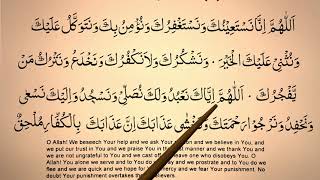 اَللّٰهُمَّ اِنَّا نَسْتَعِيْنُكَ وَنَسْتَغْفِرُكَ وَنُؤْمِنُ بِكَ وَنَتَوَكَّلُ عَلَيْكَ
وَنُثْنِيْ عَلَيْكَ الْخَيْرَ۔ وَنَشْكُرُكَ وَلَا نَكْفُرُكَ وَنَخْلَعُ وَنَتْرُكُ مَنْ
يَّفْجُرُكَ۔ اَللّٰهُمَّ اِيَّاكَ نَعْبُدُ وَلَكَ نُصَلِّيْ وَنَسْجُدُ وَاِلَيْكَ نَسْعٰى
وَنَحْفِدُ وَنَرْجُوْا رَحْمَتَكَ وَنَخْشٰى عَذَابَكَ اِنَّ عَذَابَكَ بِالْكُفَّارِ مُلْحِقٌ
O Allah! We beseech Your help and we ask Your pardon and we believe in You, and
we put our trust in You and we praise You in the best manner and we thank You and
we are not ungrateful to You and we cast off and leave one who disobeys You. O
Allah! You alone we serve and to You do we pray and we prostrate and to You do we
flee and we are quick and we hope for Your mercy and we fear Your punishment. No
doubt Your punishment overtakes the believers.